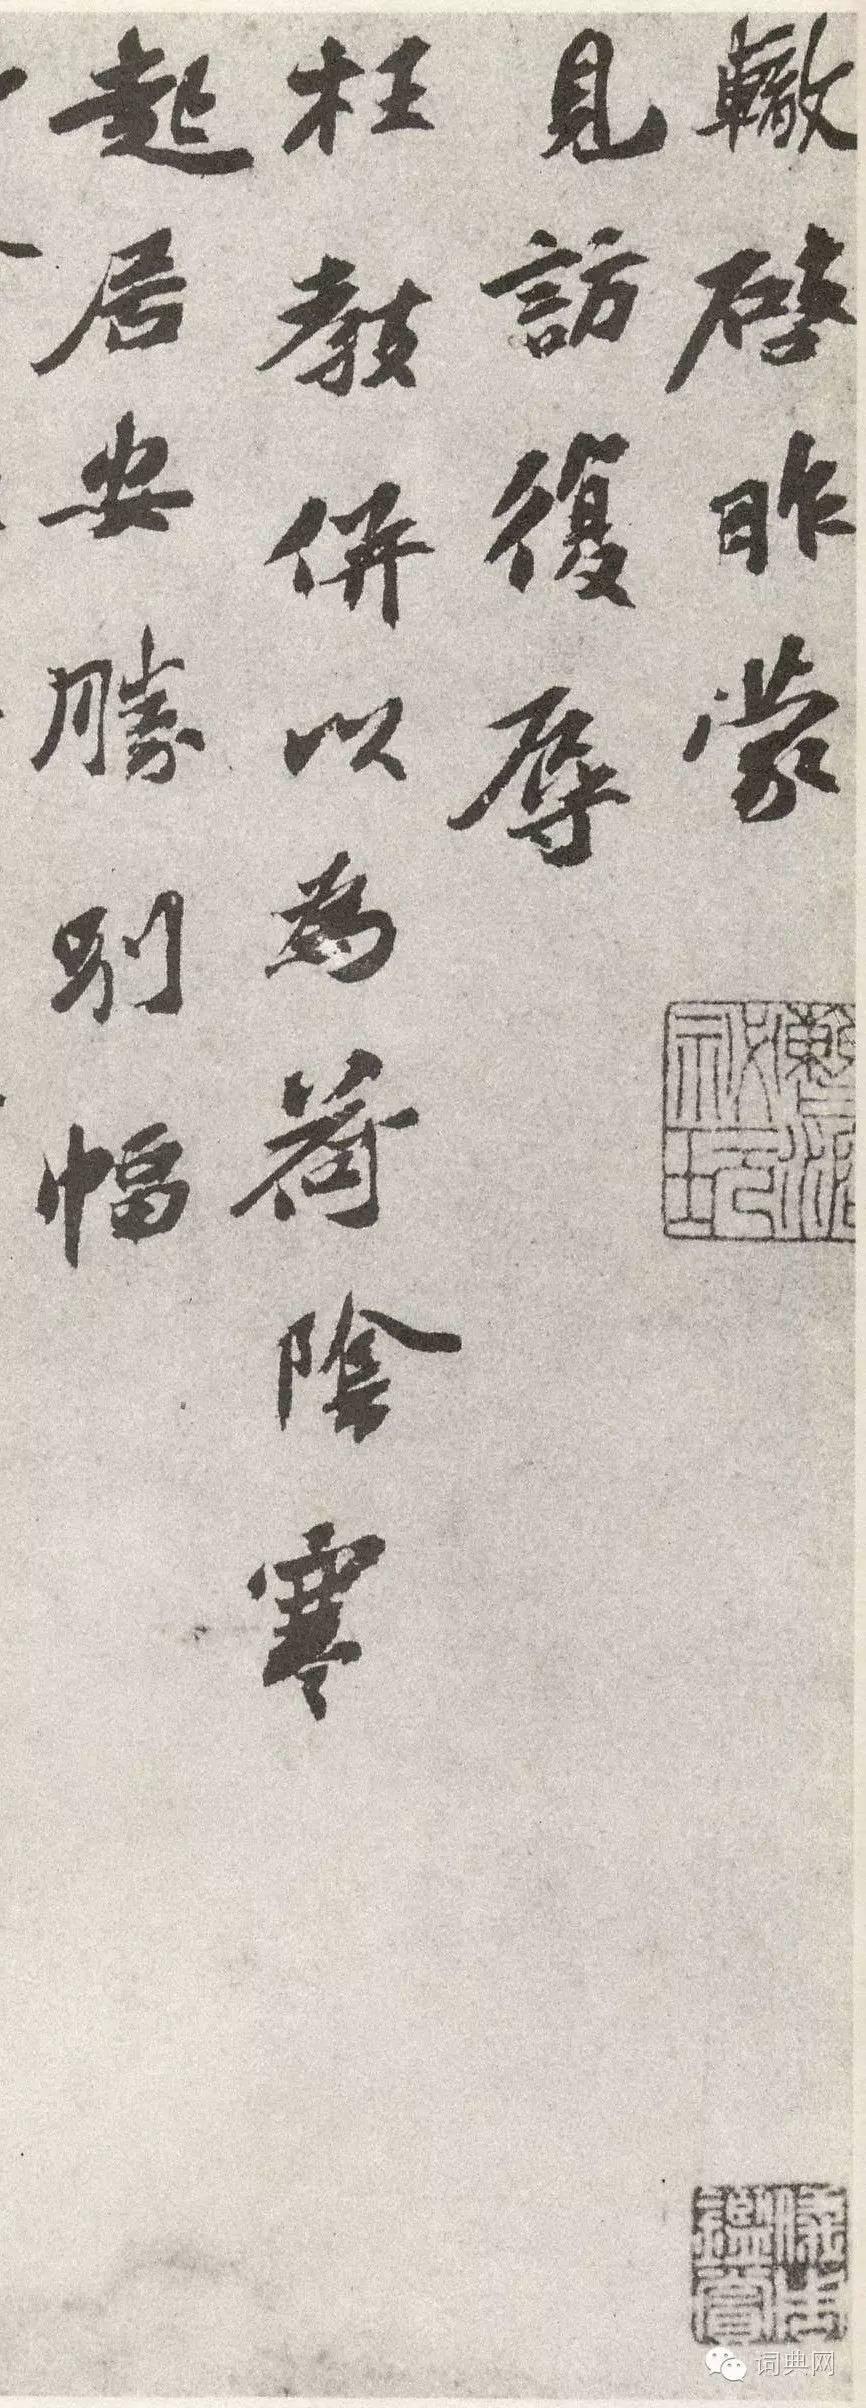 轍啓昨蒙
見訪復辱
枉教併以為荷陰寒
起居安勝別幅
詞典网